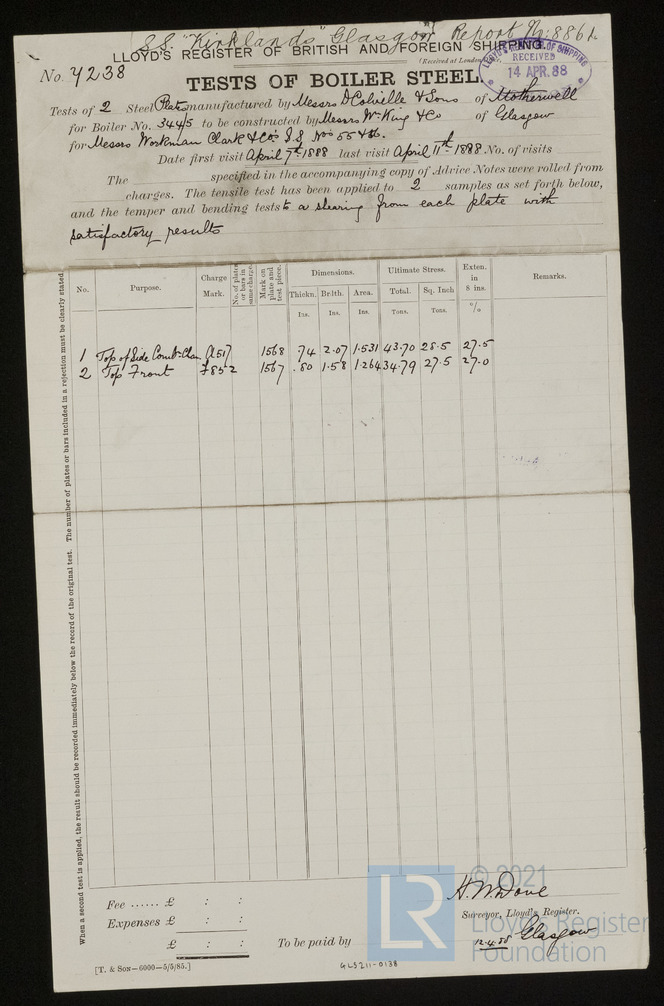 S.S. "Kirklands" Glasgow Report No. 8861
LLOYD'S REGISTER OF BRITISH AND FOREIGN SHIPPING.
No. 4238
(Received at London
LLOYD'S REGISTER OF SHIPPING
RECEIVED
14 APR. 88
TESTS OF BOILER STEEL.
Tests of 2 Steel Plates manufactured by Messrs D Colville & Sons of Motherwell
for Boiler No. 344/5 to be constructed by Messrs Wm King & Co of Glasgow
for Messrs Workman Clark & Co's S.S. Nos 55 & 56.
Date first visit April 7th 1888 last visit April 11th 1888 No. of visits
The specified in the accompanying copy of Advice Notes were rolled from
charges. The tensile test has been applied to 2 samples as set forth below,
and the temper and bending tests to a shearing from each plate with
satisfactory results
No. Purpose. Charge Mark. No. of plates or bars in same charge. Mark on plate and test piece. Dimensions. Ultimate Stress. Exten. in 8 ins. Remarks.
Thickn. Br.lth. Area. Total. Sq. Inch
Ins. Ins. Ins. Tons. Tons. %
1 Top of Side Comb. Cham 1568 .74 2.07 1.531 43.70 28.5 27.5
2 Top Front 7852 1567 .80 1.58 1.264 34.79 27.5 27.0
When a second test is applied, the result should be recorded immediately below the record of the original test. The number of plates or bars included in a rejection must be clearly stated.
Fee ...... £ : :
Expenses £ : :
£ : :
To be paid by
Surveyor, Lloyd's Register.
12.4.88 Glasgow
[T. & SON—6000—5/5/85.]
GLS211-0138
LR
© 2021
Lloyd's Register
Foundation